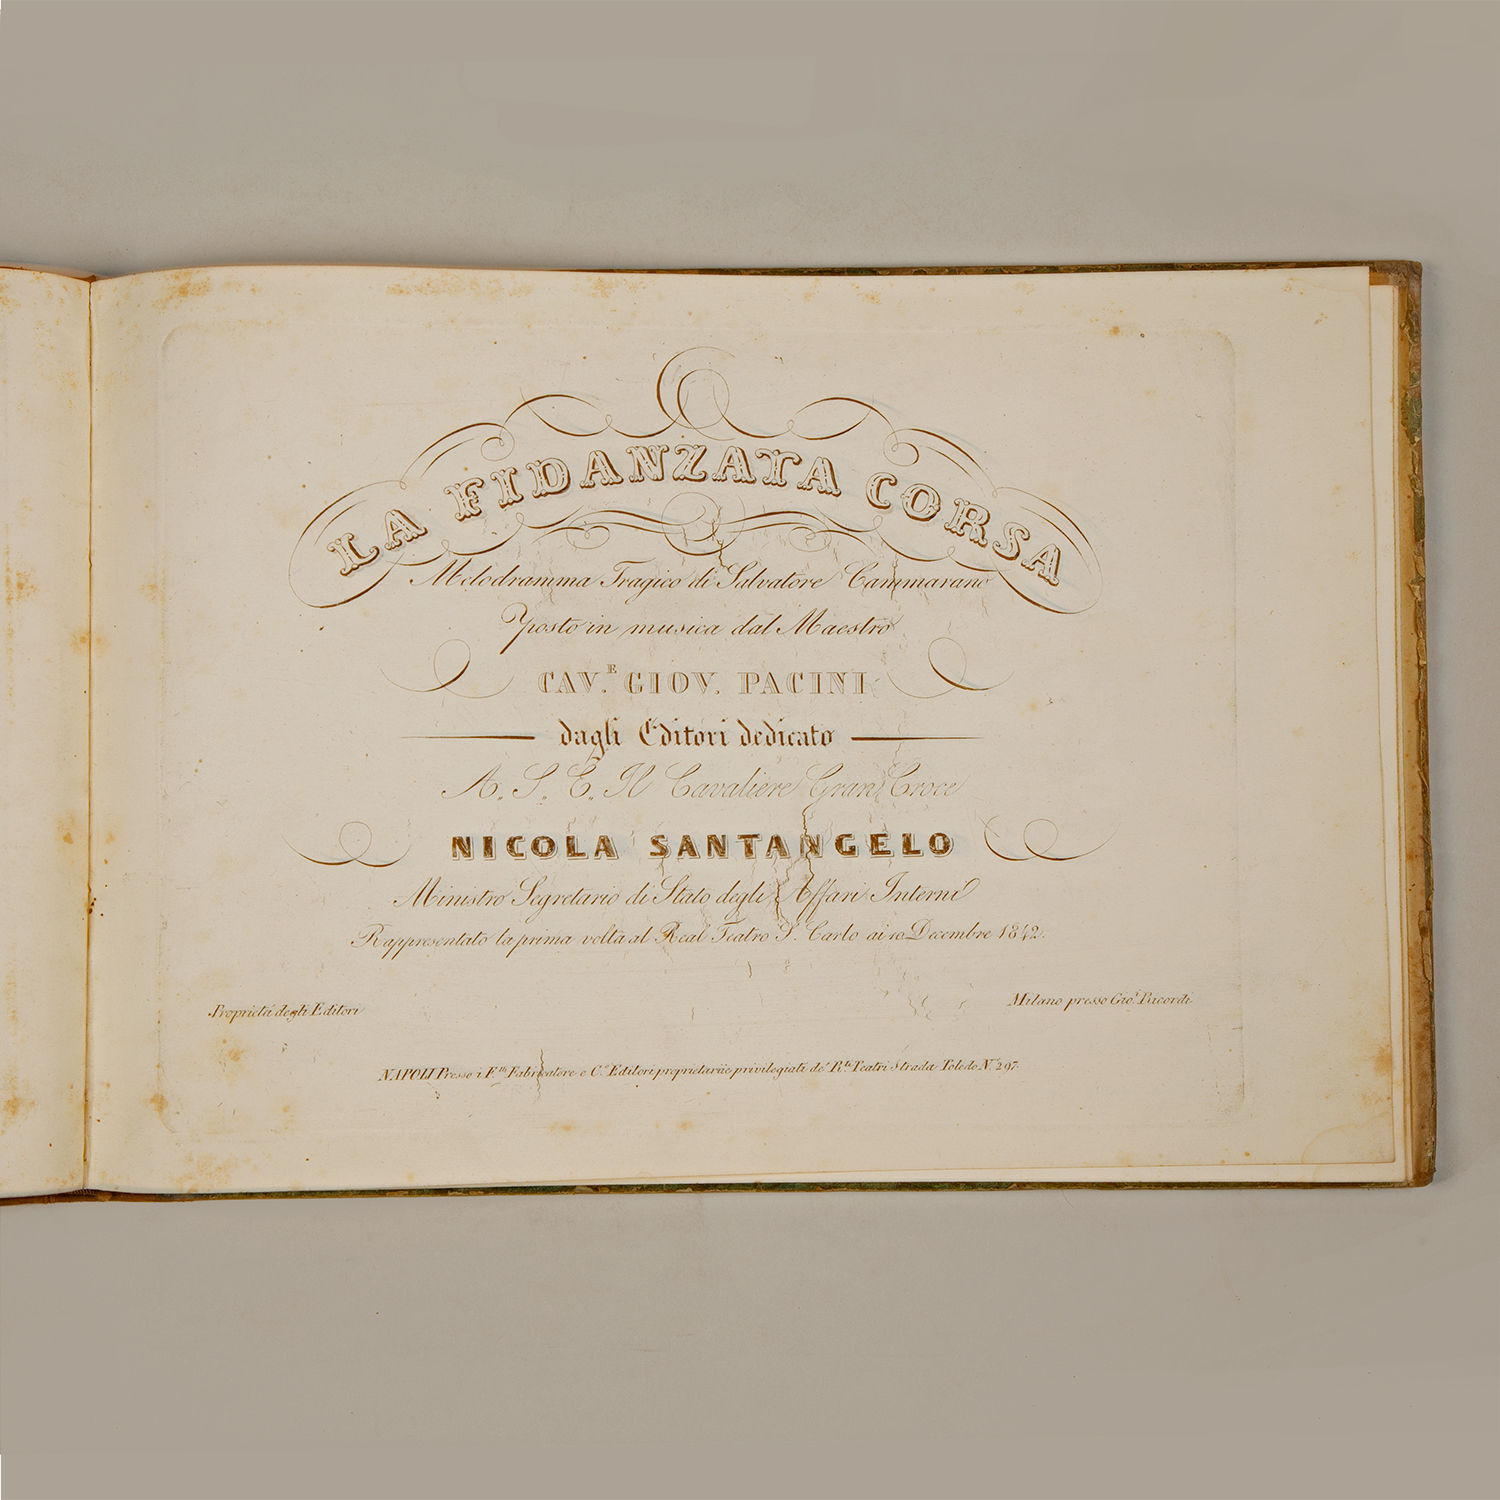 LA FIDANZATA CORSA
Melodramma Tragico di Salvatore Cammarano
Posto in musica dal Maestro
CAV.E GIOV. PACINI
dagli Editori dedicato
A. S. E. Il Cavaliere Gran Croce
NICOLA SANTANGELO
Ministro Segretario di Stato degli Affari Interni
Rappresentato la prima volta al Real Teatro S. Carlo ai 10 Decembre 1842.
Proprietà degli Editori
Milano presso Gio. Ricordi
NAPOLI Presso i F.lli Fabricatore e C.o Editori proprietarii e privilegiati de' R.li Teatri Strada Toledo N.o 297.